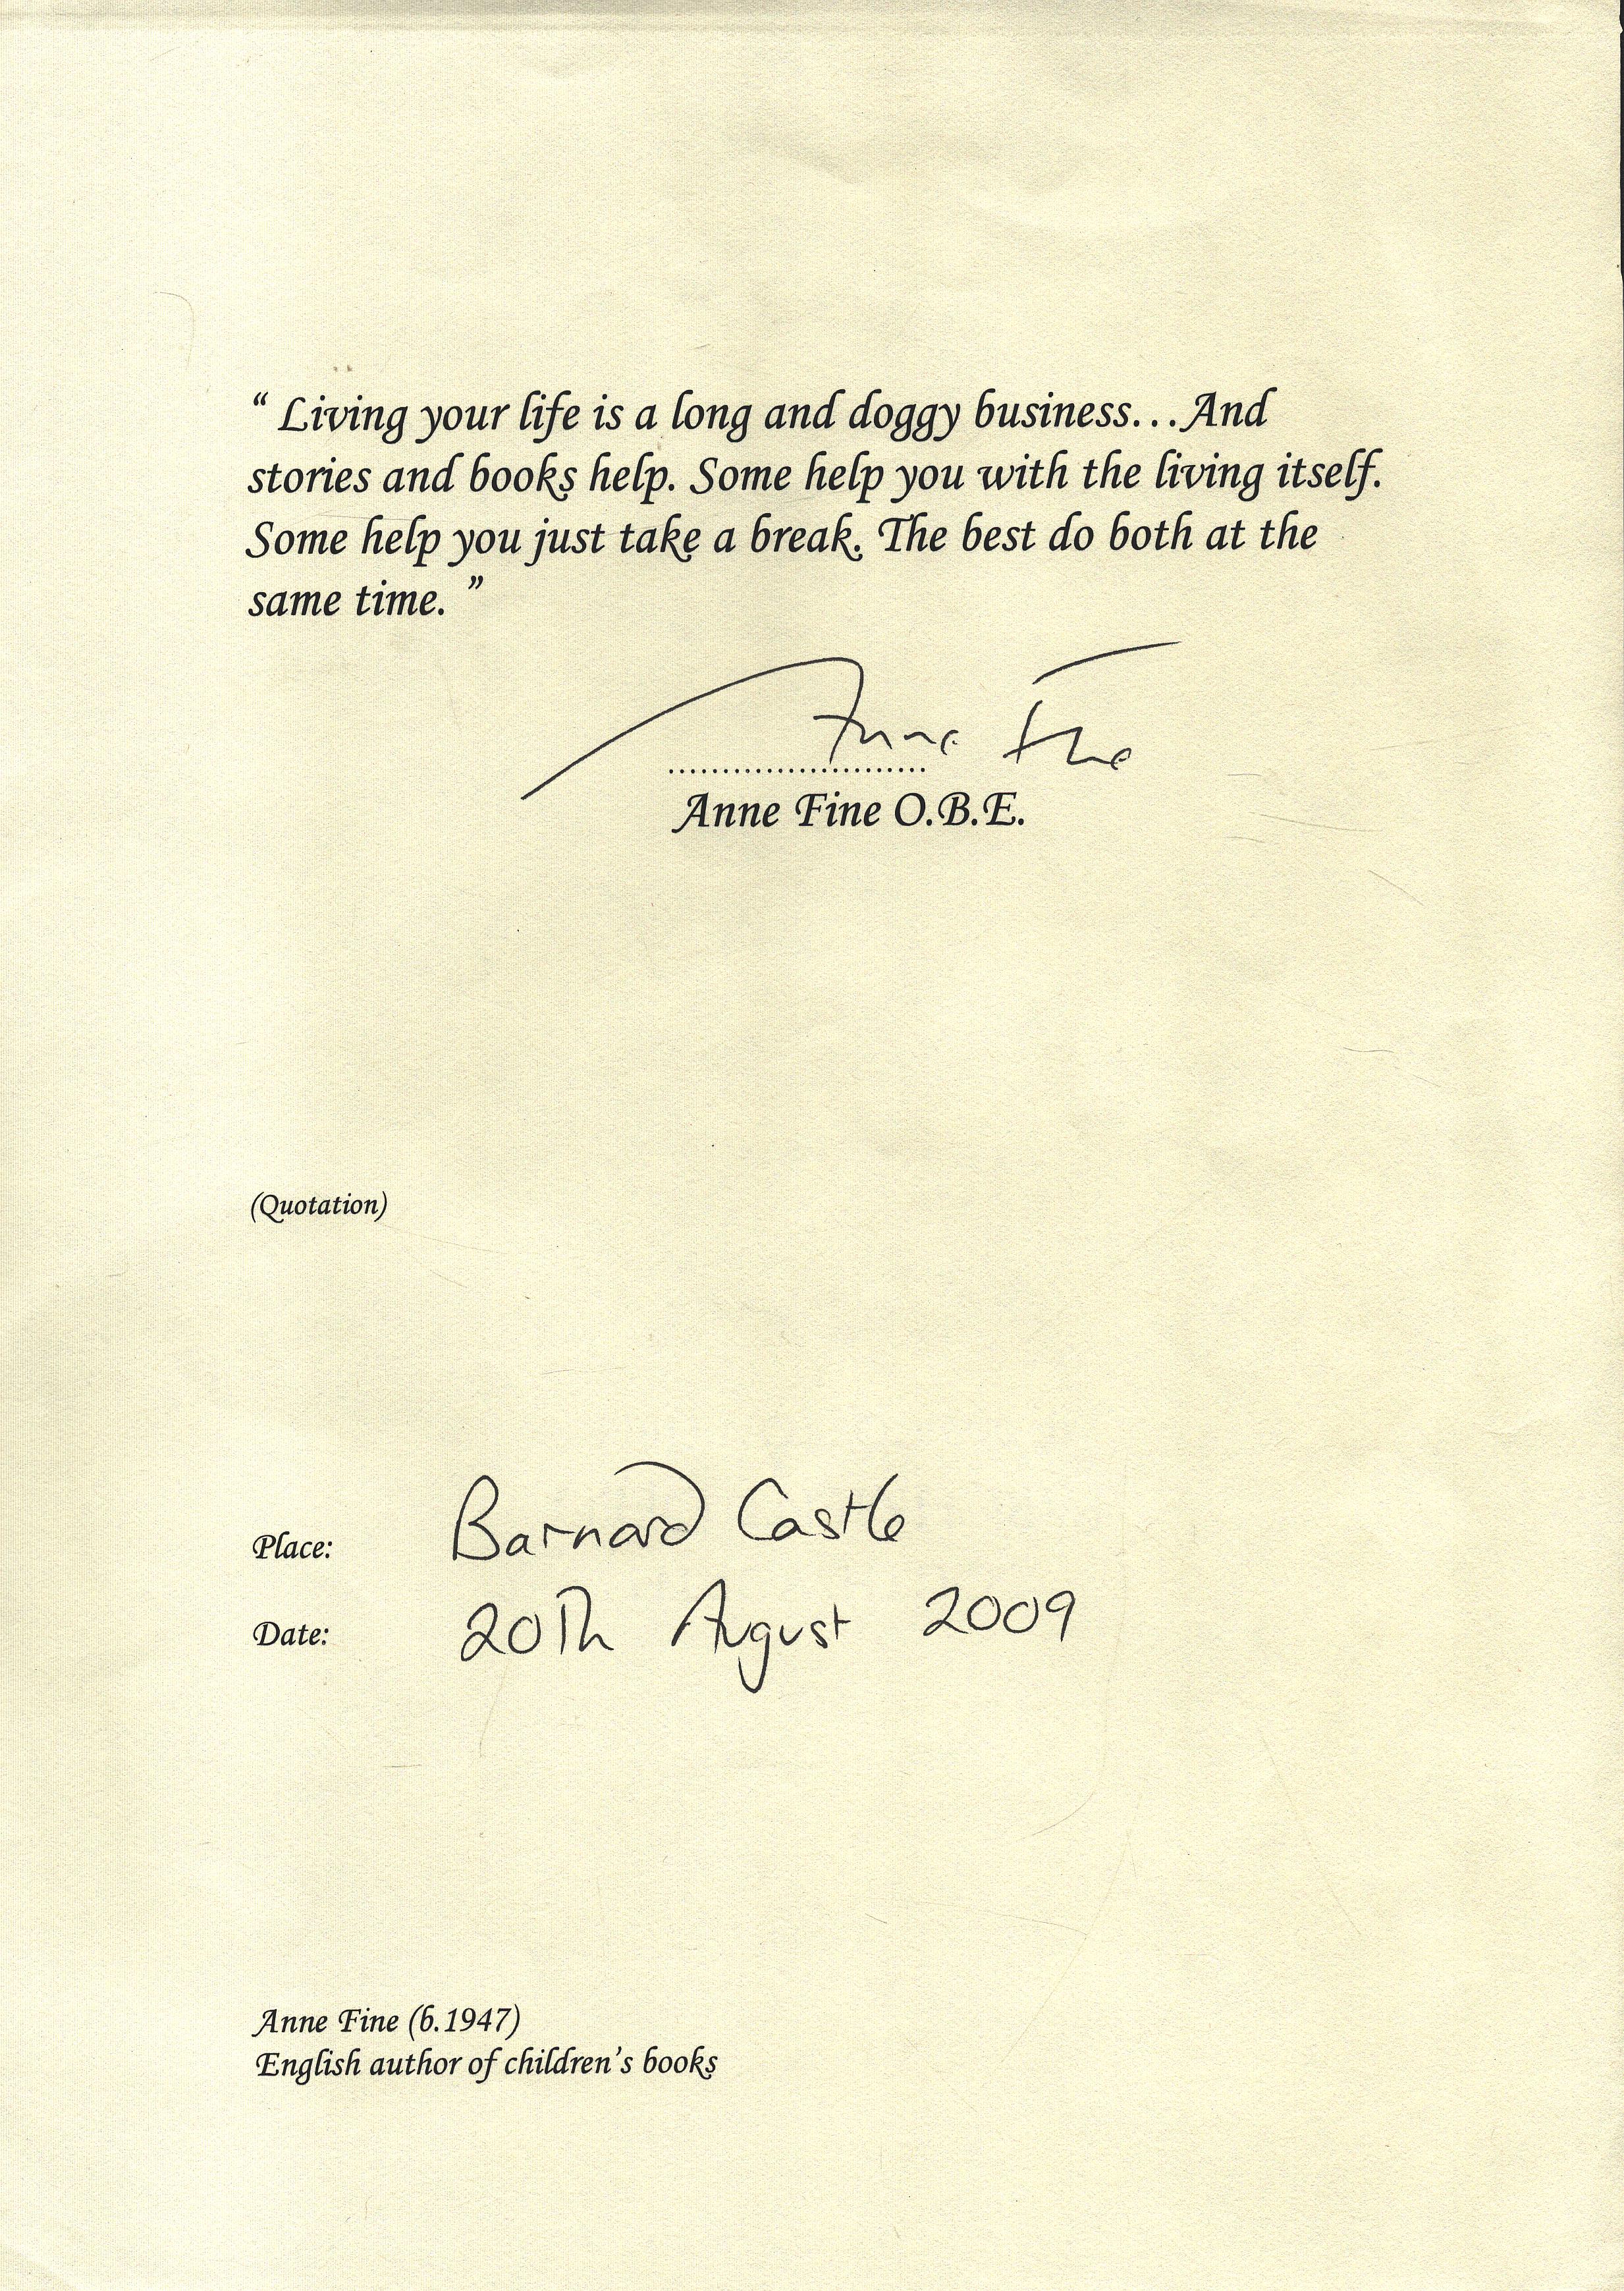 “ Living your life is a long and doggy business...And
stories and books help. Some help you with the living itself.
Some help you just take a break. The best do both at the
same time. ”
Anne Fine
........................
Anne Fine O.B.E.
(Quotation)
Place: Barnard Castle
Date: 20Th August 2009
Anne Fine (b.1947)
English author of children’s books